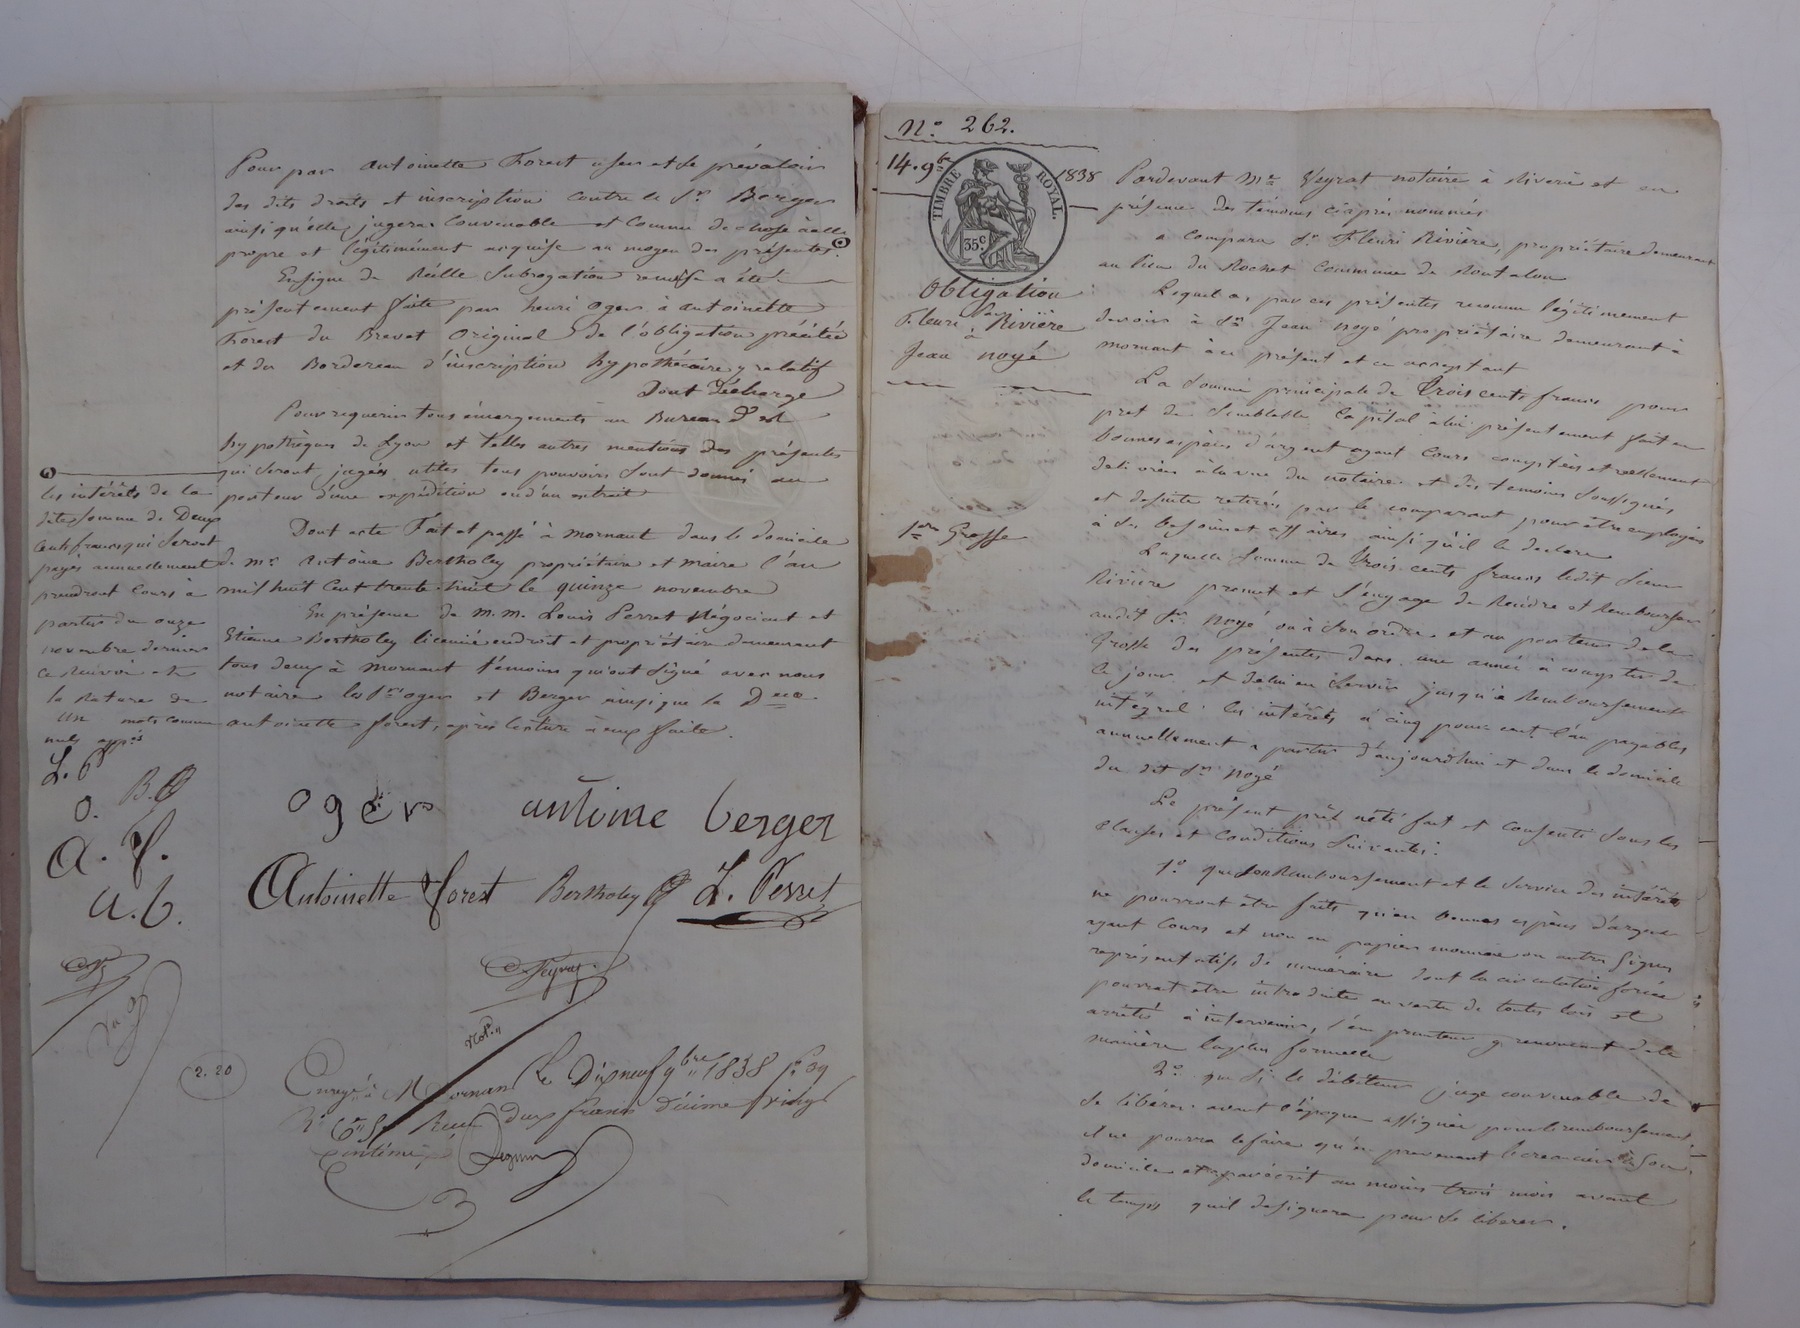 Pour par antoinette Forest user et se prévaloir
des dits droits et inscription contre le Sr. Berger
ainsi qu'elle jugera convenable et comme de chose à elle
propre et légitimément acquise au moyen des présentes.
En signe de Réelle Subrogation remise a été
présentement faite par henri oger à antoinette
Forest du Brevet original de l'obligation précitée
et du Bordereau d'inscription hypothécaire y relatif
Dont décharge
Pour requerir tous émargements au Bureau des
hypothèques de Lyon et telles autres mentions des présentes
qui seront jugées utiles tous pouvoirs sont donnés au
porteur d'une expédition ou d'un extrait
Dont acte Fait et passé à mornant dans le domicile
de mr. Antoine Bertholey propriétaire et maire l'an
mil huit cent trente huit le quinze novembre
En présence de m.m. Louis Perret Négociant et
Etienne Bertholey licencié en droit et propriétaire demeurant
tous deux à mornant témoins qui ont signé avec nous
notaire les Srs oger et Berger ainsi que la Dlle
antoinette forest, après lecture à eux faite.
les intérêts de la
dite somme de Deux
cents francs qui seront
payés annuellement
prendront cours à
partir du onze
novembre dernier
ce Renvoi et
la Rature de
un mots comme
nuls appés
L. P
O. B.
A. f.
a. b.
oger
antoine berger
Antoinette forest Bertholey L. Perret
Veyrat
Not.re
2. 20
Enregé à Mornant Le Dix neuf 9bre 1838 fo. 89
Ro. 6 Reçu deux francs décime vingt
centimes
N.o 262.
14. 9bre 1838
TIMBRE ROYAL.
35c.
Obligation
par
Fleuri Rivière
à
Jean noyé
1ere Grosse
Pardevant Me Veyrat notaire à Riverie et en
présence des témoins ci après nommés
a comparu Sr. Fleuri Rivière, propriétaire demeurant
au lieu du Rochet commune de Montalon
Lequel a par ces présentes reconnu légitimement
devoir à Sr. Jean noyé propriétaire demeurant à
mornant à ce présent et ce acceptant
La somme principale de Trois cents francs pour
pret de semblable capital à lui présentement fait en
bonnes espèces d'argent ayant cours comptées et réellement
délivrées à la vue du notaire et des temoins soussignés
et desuite retirées par le comparant pour être employées
à ses besoins et affaires ainsi qu'il le declare
Laquelle somme de Trois cents francs ledit Sieur
Rivière promet et s'engage de Rendre et Rembourser
audit Sr. noyé ou à son ordre et au porteur de la
Grosse des présentes dans une année à compter de
ce jour et de lui en servir jusqu'à Remboursement
intégral les intérêts à cinq pour cent l'an payables
annuellement a partir d'aujourd'hui et dans le domicile
du dit Sr. noyé
Le présent prêt a été fait et consenti sous les
clauses et conditions suivantes:
1o. que son Remboursement et le service des intérêts
ne pourront être faits qu'en bonnes espèces d'argent
ayant cours et non en papier monnaie ou autres signes
représentatifs de numéraire dont la circulation forcée
pourrait être introduite en vertu de toutes lois et
arrêtés à intervenir, l'emprunteur y renonçant de la
manière la plus formelle
2o. que si le débiteur juge convenable de
se libérer avant l'époque assignée pour le remboursement
il ne pourra le faire qu'en prevenant le creancier à son
domicile et par écrit au moins trois mois avant
le temps qu'il désignera pour se liberer.